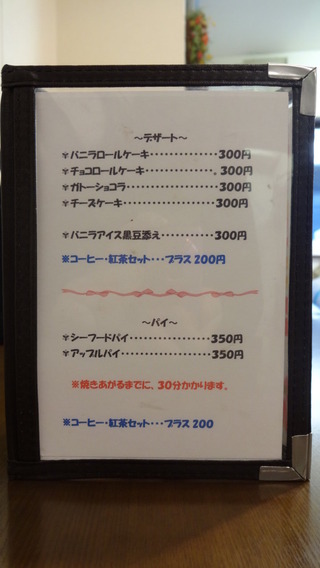 ～デザート～
✾バニラロールケーキ・・・・・・・・・・・・・・300円
✾チョコロールケーキ・・・・・・・・・・・・・。300円
✾ガトーショコラ・・・・・・・・・・・・・・・・・300円
✾チーズケーキ・・・・・・・・・・・・・・・・・・300円
✾バニラアイス黒豆添え・・・・・・・・・・・300円
※コーヒー・紅茶セット・・・プラス200円
～パイ～
✾シーフードパイ・・・・・・・・・・・・・・・・350円
✾アップルパイ・・・・・・・・・・・・・・・・・・350円
※焼きあがるまでに、30分かかります。
※コーヒー・紅茶セット・・・プラス200